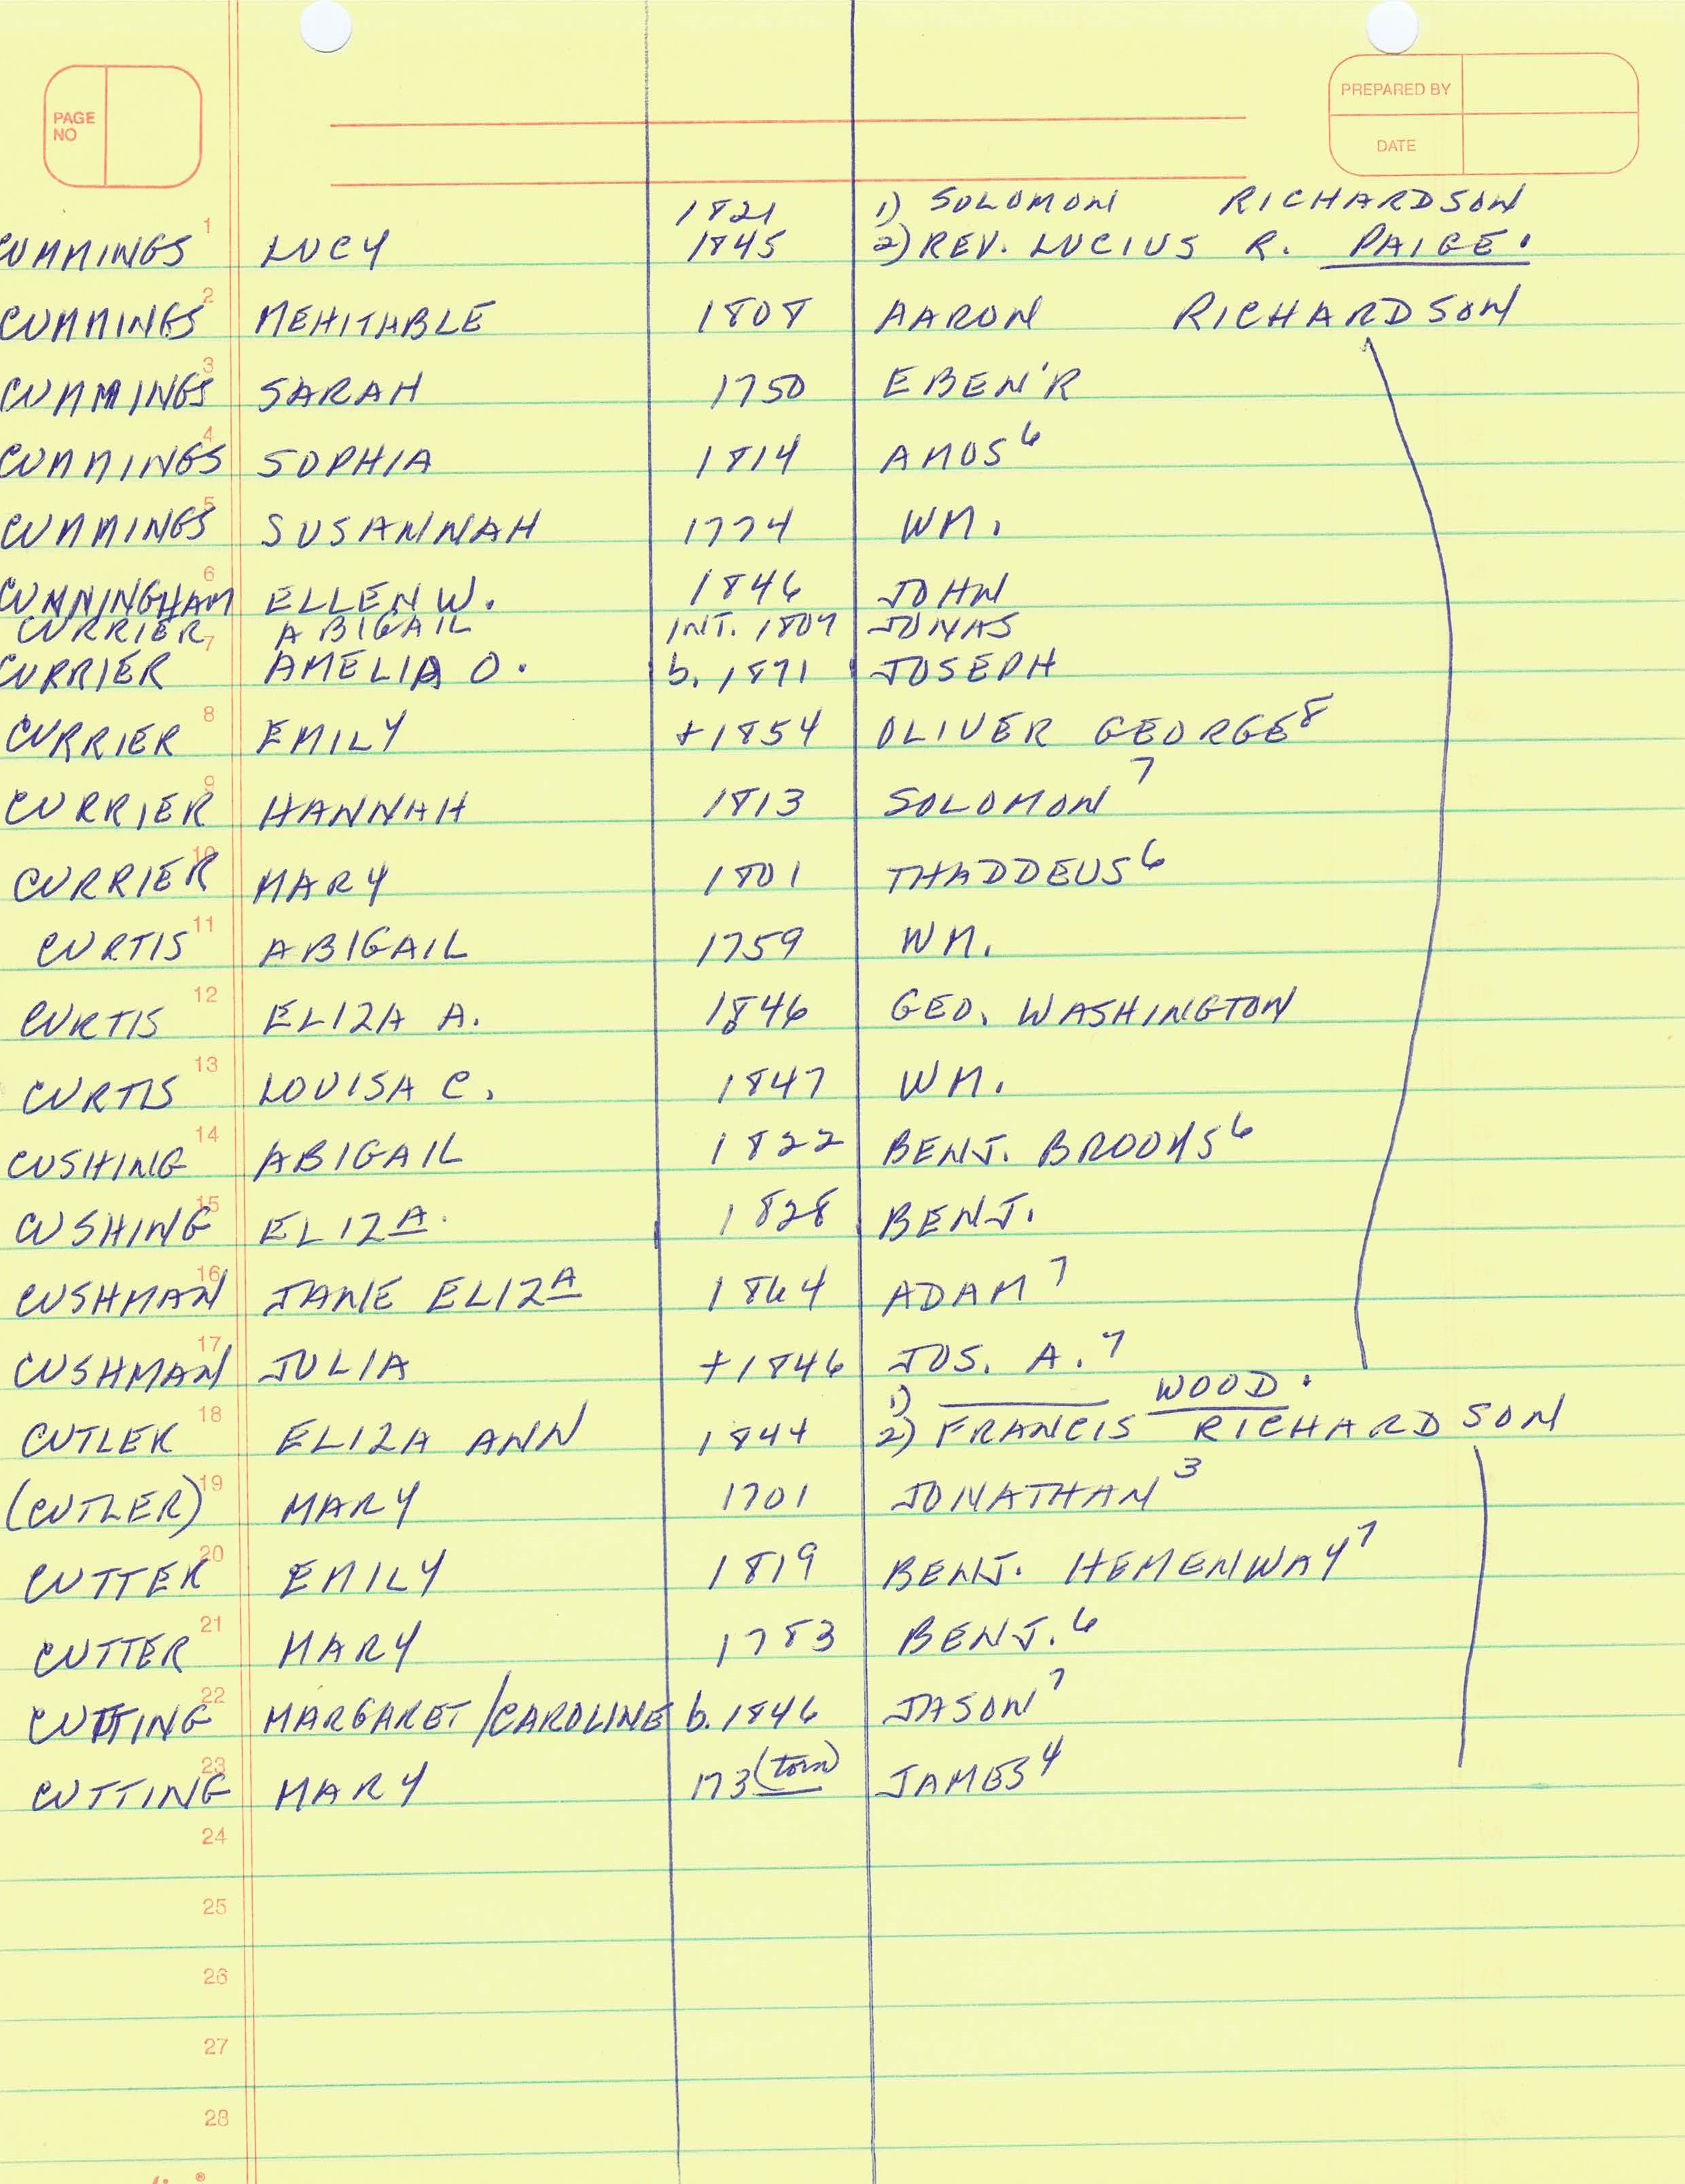 PAGE NO
PREPARED BY
DATE
1821 1) SOLOMON RICHARDSON
1 CUMMINGS LUCY 1845 2) REV. LUCIUS R. PAIGE.
2 CUMMINGS MEHITABLE 1808 AARON RICHARDSON
3 CUMMINGS SARAH 1750 EBEN'R
4 CUMMINGS SOPHIA 1814 AMOS⁶
5 CUMMINGS SUSANNAH 1774 WM.
6 CUNNINGHAM ELLEN W. 1846 JOHN
CURRIER ABIGAIL INT. 1809 JONAS
7 CURRIER AMELIA O. b. 1871 JOSEPH
8 CURRIER EMILY +1854 OLIVER GEORGE⁸
9 CURRIER HANNAH 1813 SOLOMON⁷
10 CURRIER MARY 1801 THADDEUS⁶
11 CURTIS ABIGAIL 1759 WM.
12 CURTIS ELIZA A. 1846 GEO. WASHINGTON
13 CURTIS LOUISA C. 1847 WM.
14 CUSHING ABIGAIL 1822 BENJ. BROOKS⁶
15 CUSHING ELIZA. 1828 BENJ.
16 CUSHMAN JANE ELIZA 1864 ADAM⁷
17 CUSHMAN JULIA +1846 JOS. A.⁷
1) ——— WOOD.
18 CUTLER ELIZA ANN 1844 2) FRANCIS RICHARDSON
19 (CUTLER) MARY 1701 JONATHAN³
20 CUTTER EMILY 1819 BENJ. HEMENWAY⁷
21 CUTTER MARY 1783 BENJ.⁶
22 CUTTING MARGARET/CAROLINE b. 1846 JASON⁷
23 CUTTING MARY 173(torn) JAMES⁴
24
25
26
27
28